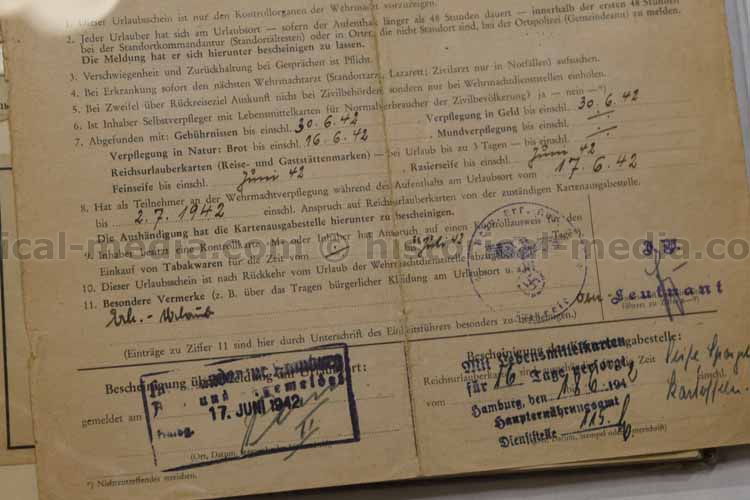 1. Dieser Urlaubsschein ist nur den Kontrollorganen der Wehrmacht vorzuzeigen.
2. Jeder Urlauber hat sich am Urlaubsort — sofern der Aufenthalt länger als 48 Stunden dauert — innerhalb der ersten 48 Stunden
bei der Standortkommandantur (Standortältesten) oder in Orten, die nicht Standort sind, bei der Ortspolizei (Gemeindeamt) zu melden.
Die Meldung hat er sich hierunter bescheinigen zu lassen.
3. Verschwiegenheit und Zurückhaltung bei Gesprächen ist Pflicht.
4. Bei Erkrankung sofort den nächsten Wehrmachtarzt (Standortarzt, Lazarett; Zivilarzt nur in Notfällen) aufsuchen.
5. Bei Zweifel über Rückreiseziel Auskunft nicht bei Zivilbehörden sondern nur bei Wehrmachtdienststellen einholen.
6. Ist Inhaber Selbstverpfleger mit Lebensmittelkarten für Normalverbraucher der Zivilbevölkerung? ja — nein —*)
7. Abgefunden mit: Gebührnissen bis einschl. 30.6.42 . Verpflegung in Geld bis einschl. 30.6.42
Verpflegung in Natur: Brot bis einschl. 16.6.42 . Mundverpflegung bis einschl.
Reichsurlauberkarten (Reise- und Gaststättenmarken) — bei Urlaub bis zu 3 Tagen — bis einschl.
Feinseife bis einschl. Juni 42 . Rasierseife bis einschl. Juni 42
8. Hat als Teilnehmer an der Wehrmachtverpflegung während des Aufenthalts am Urlaubsort vom 17.6.42
bis 2.7.1942 einschl. Anspruch auf Reichsurlauberkarten von der zuständigen Kartenausgabestelle.
Die Aushändigung hat die Kartenausgabestelle hierunter zu bescheinigen.
9. Inhaber besitzt eine Kontrollkarte M oder Inhaber hat Anspruch auf einen Kontrollausweis für den
Einkauf von Tabakwaren für die Zeit vom bis Tage
10. Dieser Urlaubsschein ist nach Rückkehr vom Urlaub der Wehrmachtdienststelle
11. Besondere Vermerke (z. B. über das Tragen bürgerlicher Kleidung am Urlaubsort u. a.)
Erh. - Urlaub
I. V.
Leutnant
(Einträge zu Ziffer 11 sind hier durch Unterschrift des Einheitsführers besonders zu bescheinigen.)
Bescheinigung über Meldung am Urlaubsort:
gemeldet am
und gemeldet
17. JUNI 1942
(Ort, Datum,
*) Nichtzutreffendes streichen.
Bescheinigung der Kartenausgabestelle:
Reichsurlauberkarten
vom Zeit einschl.
Mit Lebensmittelkarten
für 16 Tage versorgt
Hamburg, den 18.6. 194
Haupternährungsamt
Dienststelle 115
Datum, Stempel oder Unterschrift)
Seife
Kartoffeln
historical-media.com © historical-media.com